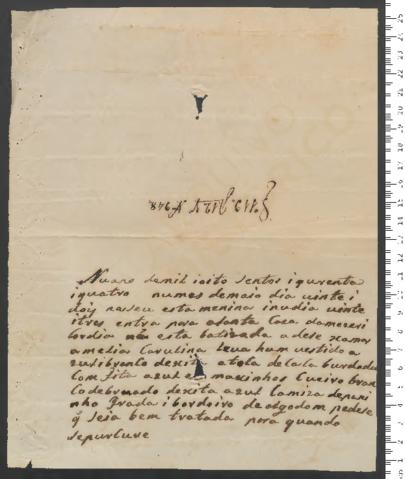 Nuano demil ioito sentos i qurenta
iquatro numes demaio dia uinte i
dois naiseu esta menina inudia uinte
itres entra para adonte Caza damezeri
Cordia não esta batizada a dese xamar
amelia Carulina leva hum vestido a
zul ibranlo dexita a tola de Cala burdadu
Com fita azul maxinhos Cueiro bran
Co debruado dexita azul Camiza depani
nho ibordoiro de algodom pedese
q̃ Seia bem tratada para quando
sepurlure